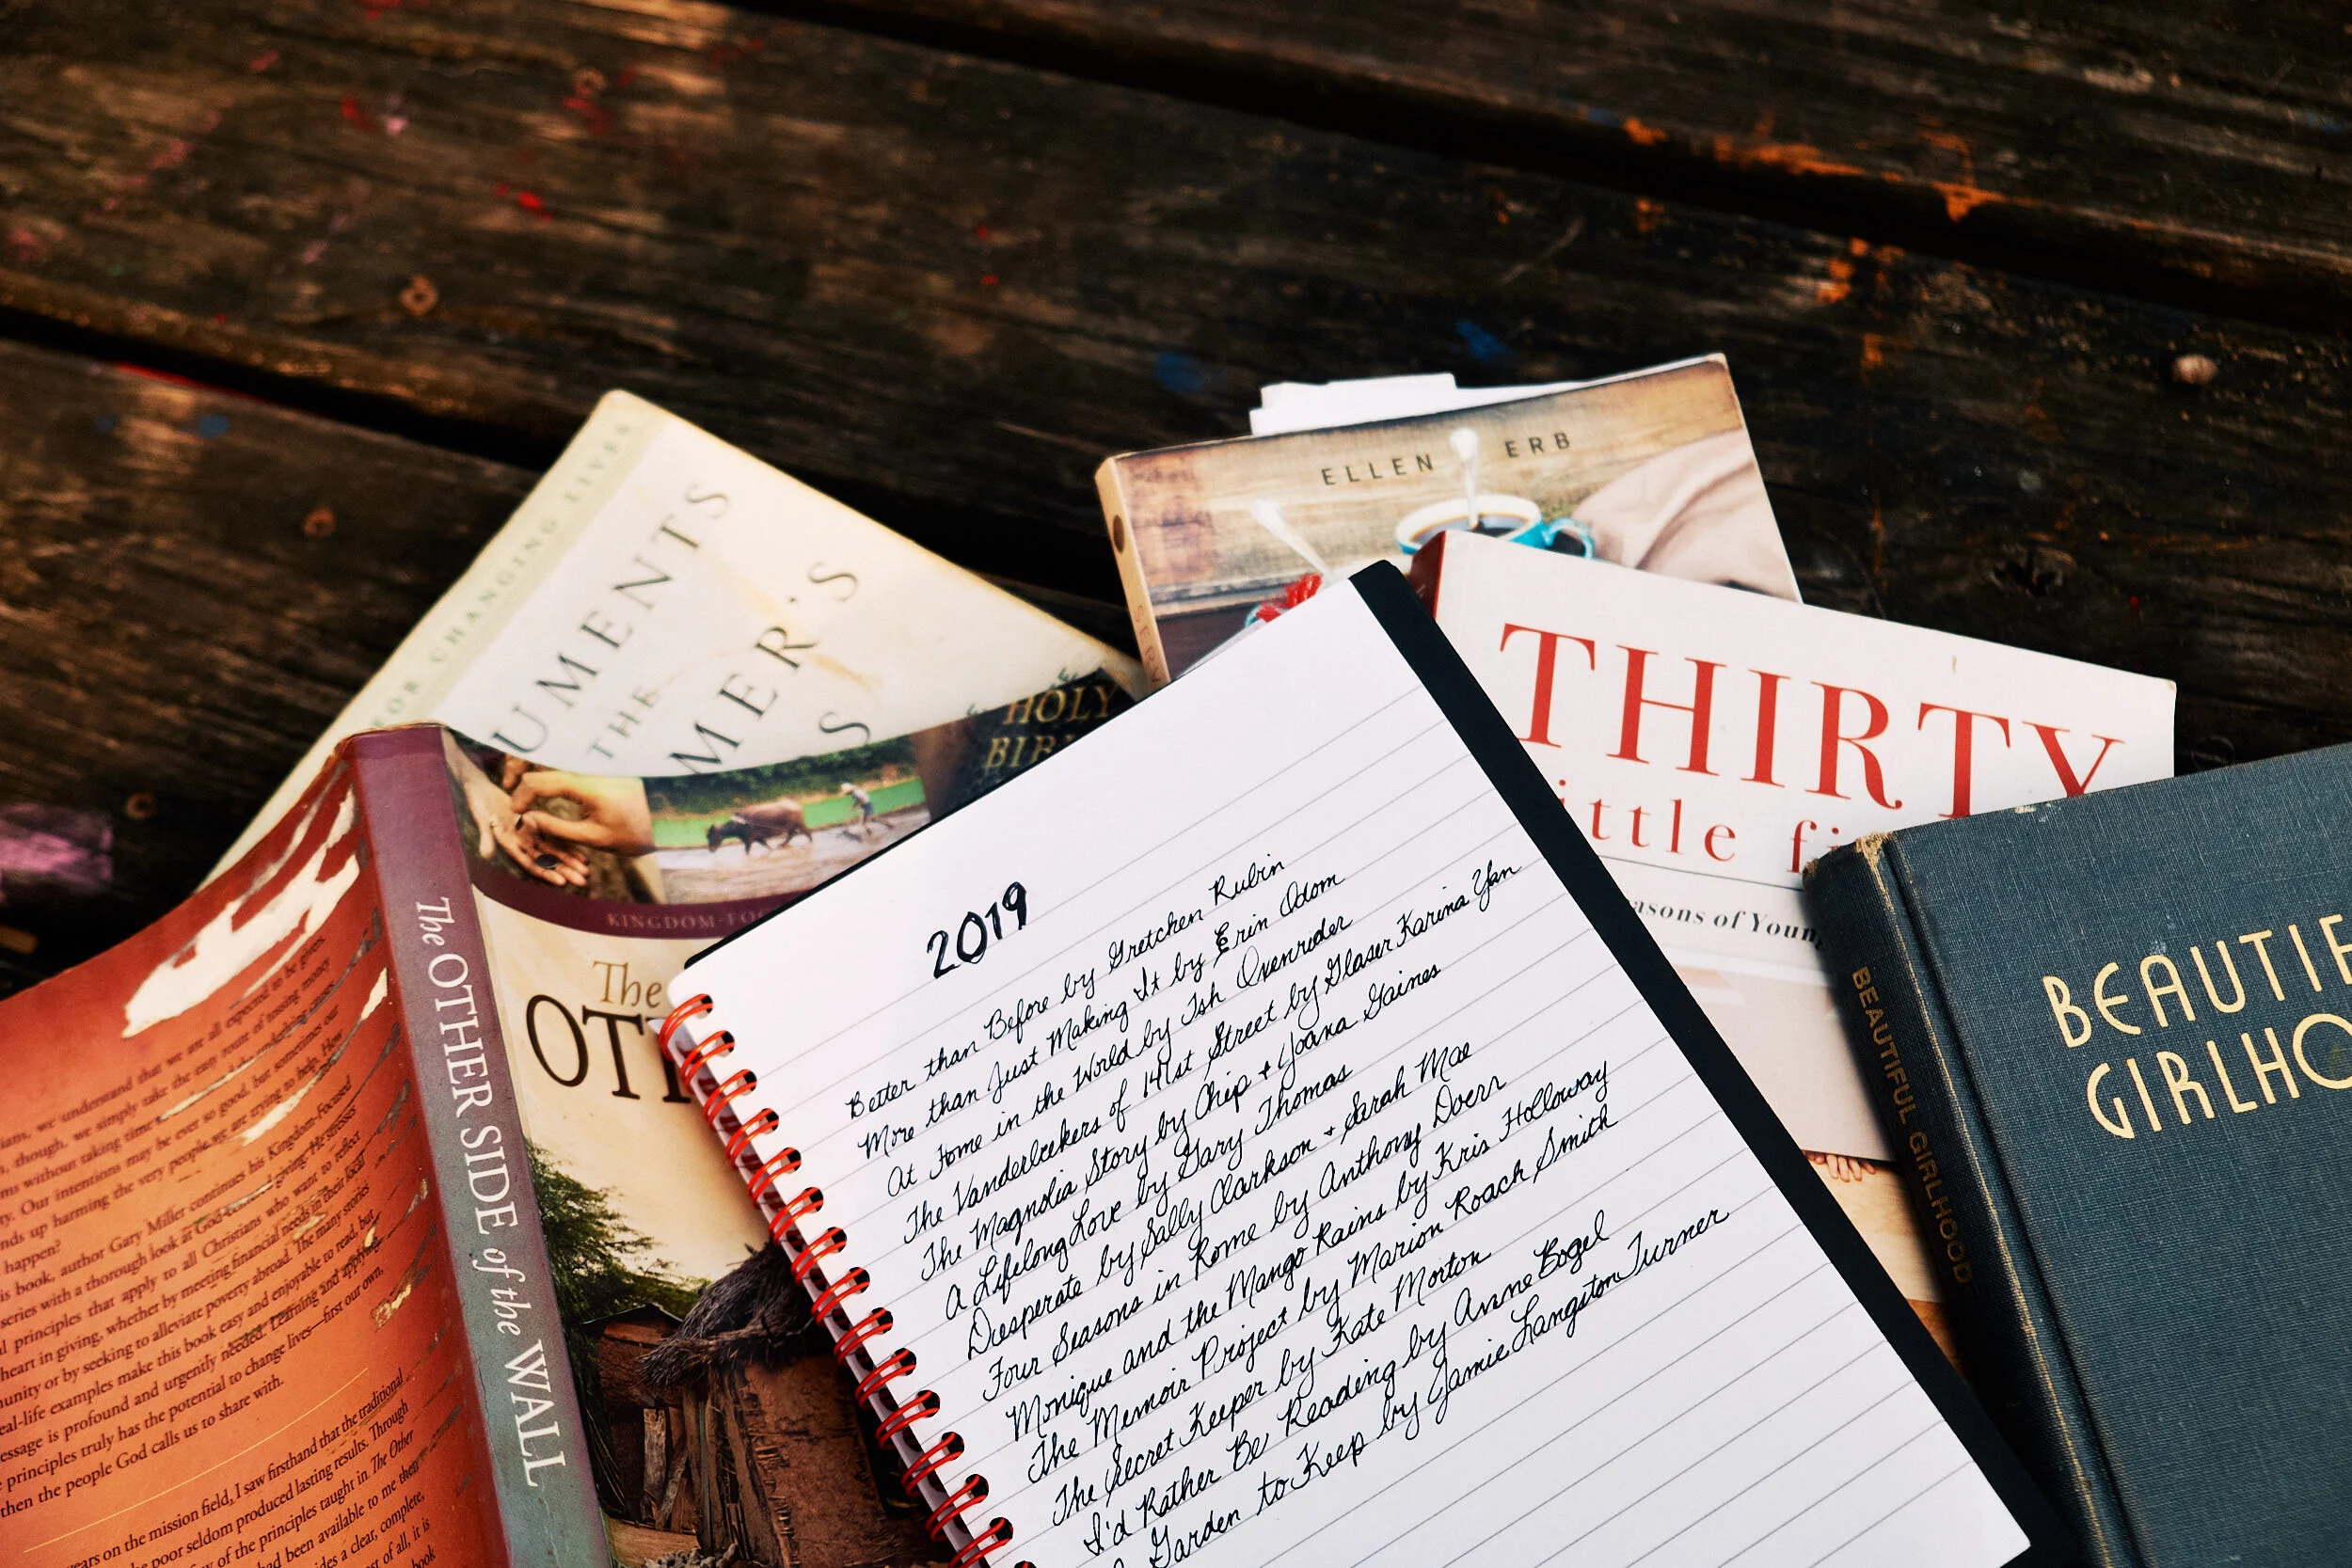 FOR CHANGING LIVES
UMENTS
THE
MER'S
S
ELLEN ERB
HOLY
THIRTY
ittle fi
asons of Young
KINGDOM-FO
The
OT
The OTHER SIDE of the WALL
BEAUTIFUL GIRLHOOD
BEAUTIF
GIRLHO
2019
Better than Before by Gretchen Rubin
More than Just Making It by Erin Odom
At Home in the World by Tsh Oxenrider
The Vanderbeekers of 141st Street by Glaser Karina Yan
The Magnolia Story by Chip + Joana Gaines
A Lifelong Love by Gary Thomas
Desperate by Sally Clarkson + Sarah Mae
Four Seasons in Rome by Anthony Doerr
Monique and the Mango Rains by Kris Holloway
The Memoir Project by Marion Roach Smith
The Secret Keeper by Kate Morton
I'd Rather Be Reading by Anne Bogel
Garden to Keep by Jamie Langston Turner
we understand that we are all expected to be givers.
though, we simply take the easy route of tossing money
ms without taking time
Our intentions may be ever so good, but sometimes our
nds up harming the very people we are trying to help. How
happen?
is book, author Gary Miller continues his Kingdom-Focused
series with a thorough look at God-centered giving. He stresses
l principles that apply to all Christians who want to reflect
heart in giving, whether by meeting financial needs in their local
munity or by seeking to alleviate poverty abroad. The many stories
eal-life examples make this book easy and enjoyable to read, but
essage is profound and urgently needed. Learning and applying
e principles truly has the potential to change lives—first our own,
then the people God calls us to share with.
years on the mission field, I saw firsthand that the traditional
he poor seldom produced lasting results. Through
of the principles taught in The Other
had been available to me then
des a clear, complete,
st of all, it is
book